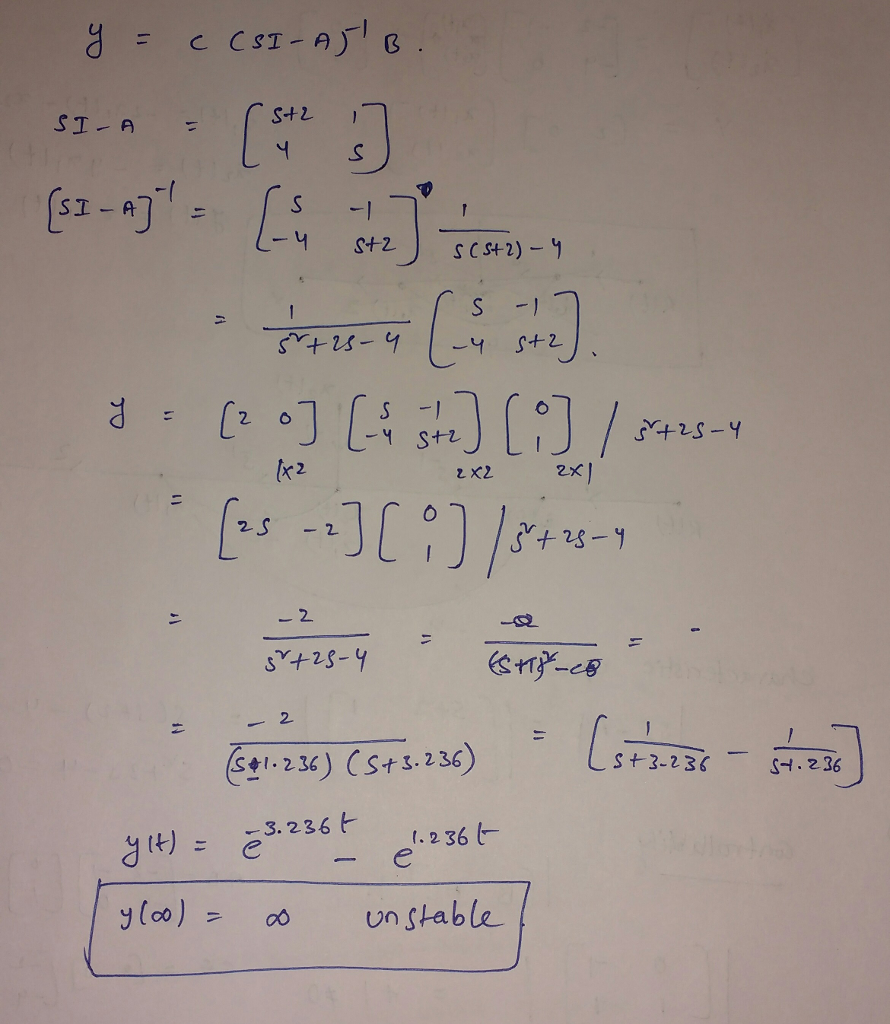 y = c (SI-A)^-1 B.
SI-A = [ S+2 1 ; 4 S ]
[SI-A]^-1 = [ S -1 ; -4 S+2 ] 1 / S(S+2)-4
= 1 / S²+2S-4 [ S -1 ; -4 S+2 ].
y = [2 0] [ S -1 ; -4 S+2 ] [ 0 ; 1 ] / S²+2S-4
1x2 2x2 2x1
= [2S -2] [ 0 ; 1 ] / S²+2S-4
= -2 / S²+2S-4 = = -
= -2 / (S-1.236) (S+3.236) = [ 1 / S+3.236 - 1 / S-1.236 ]
y(t) = e^-3.236t - e^1.236t
y(∞) = ∞ unstable